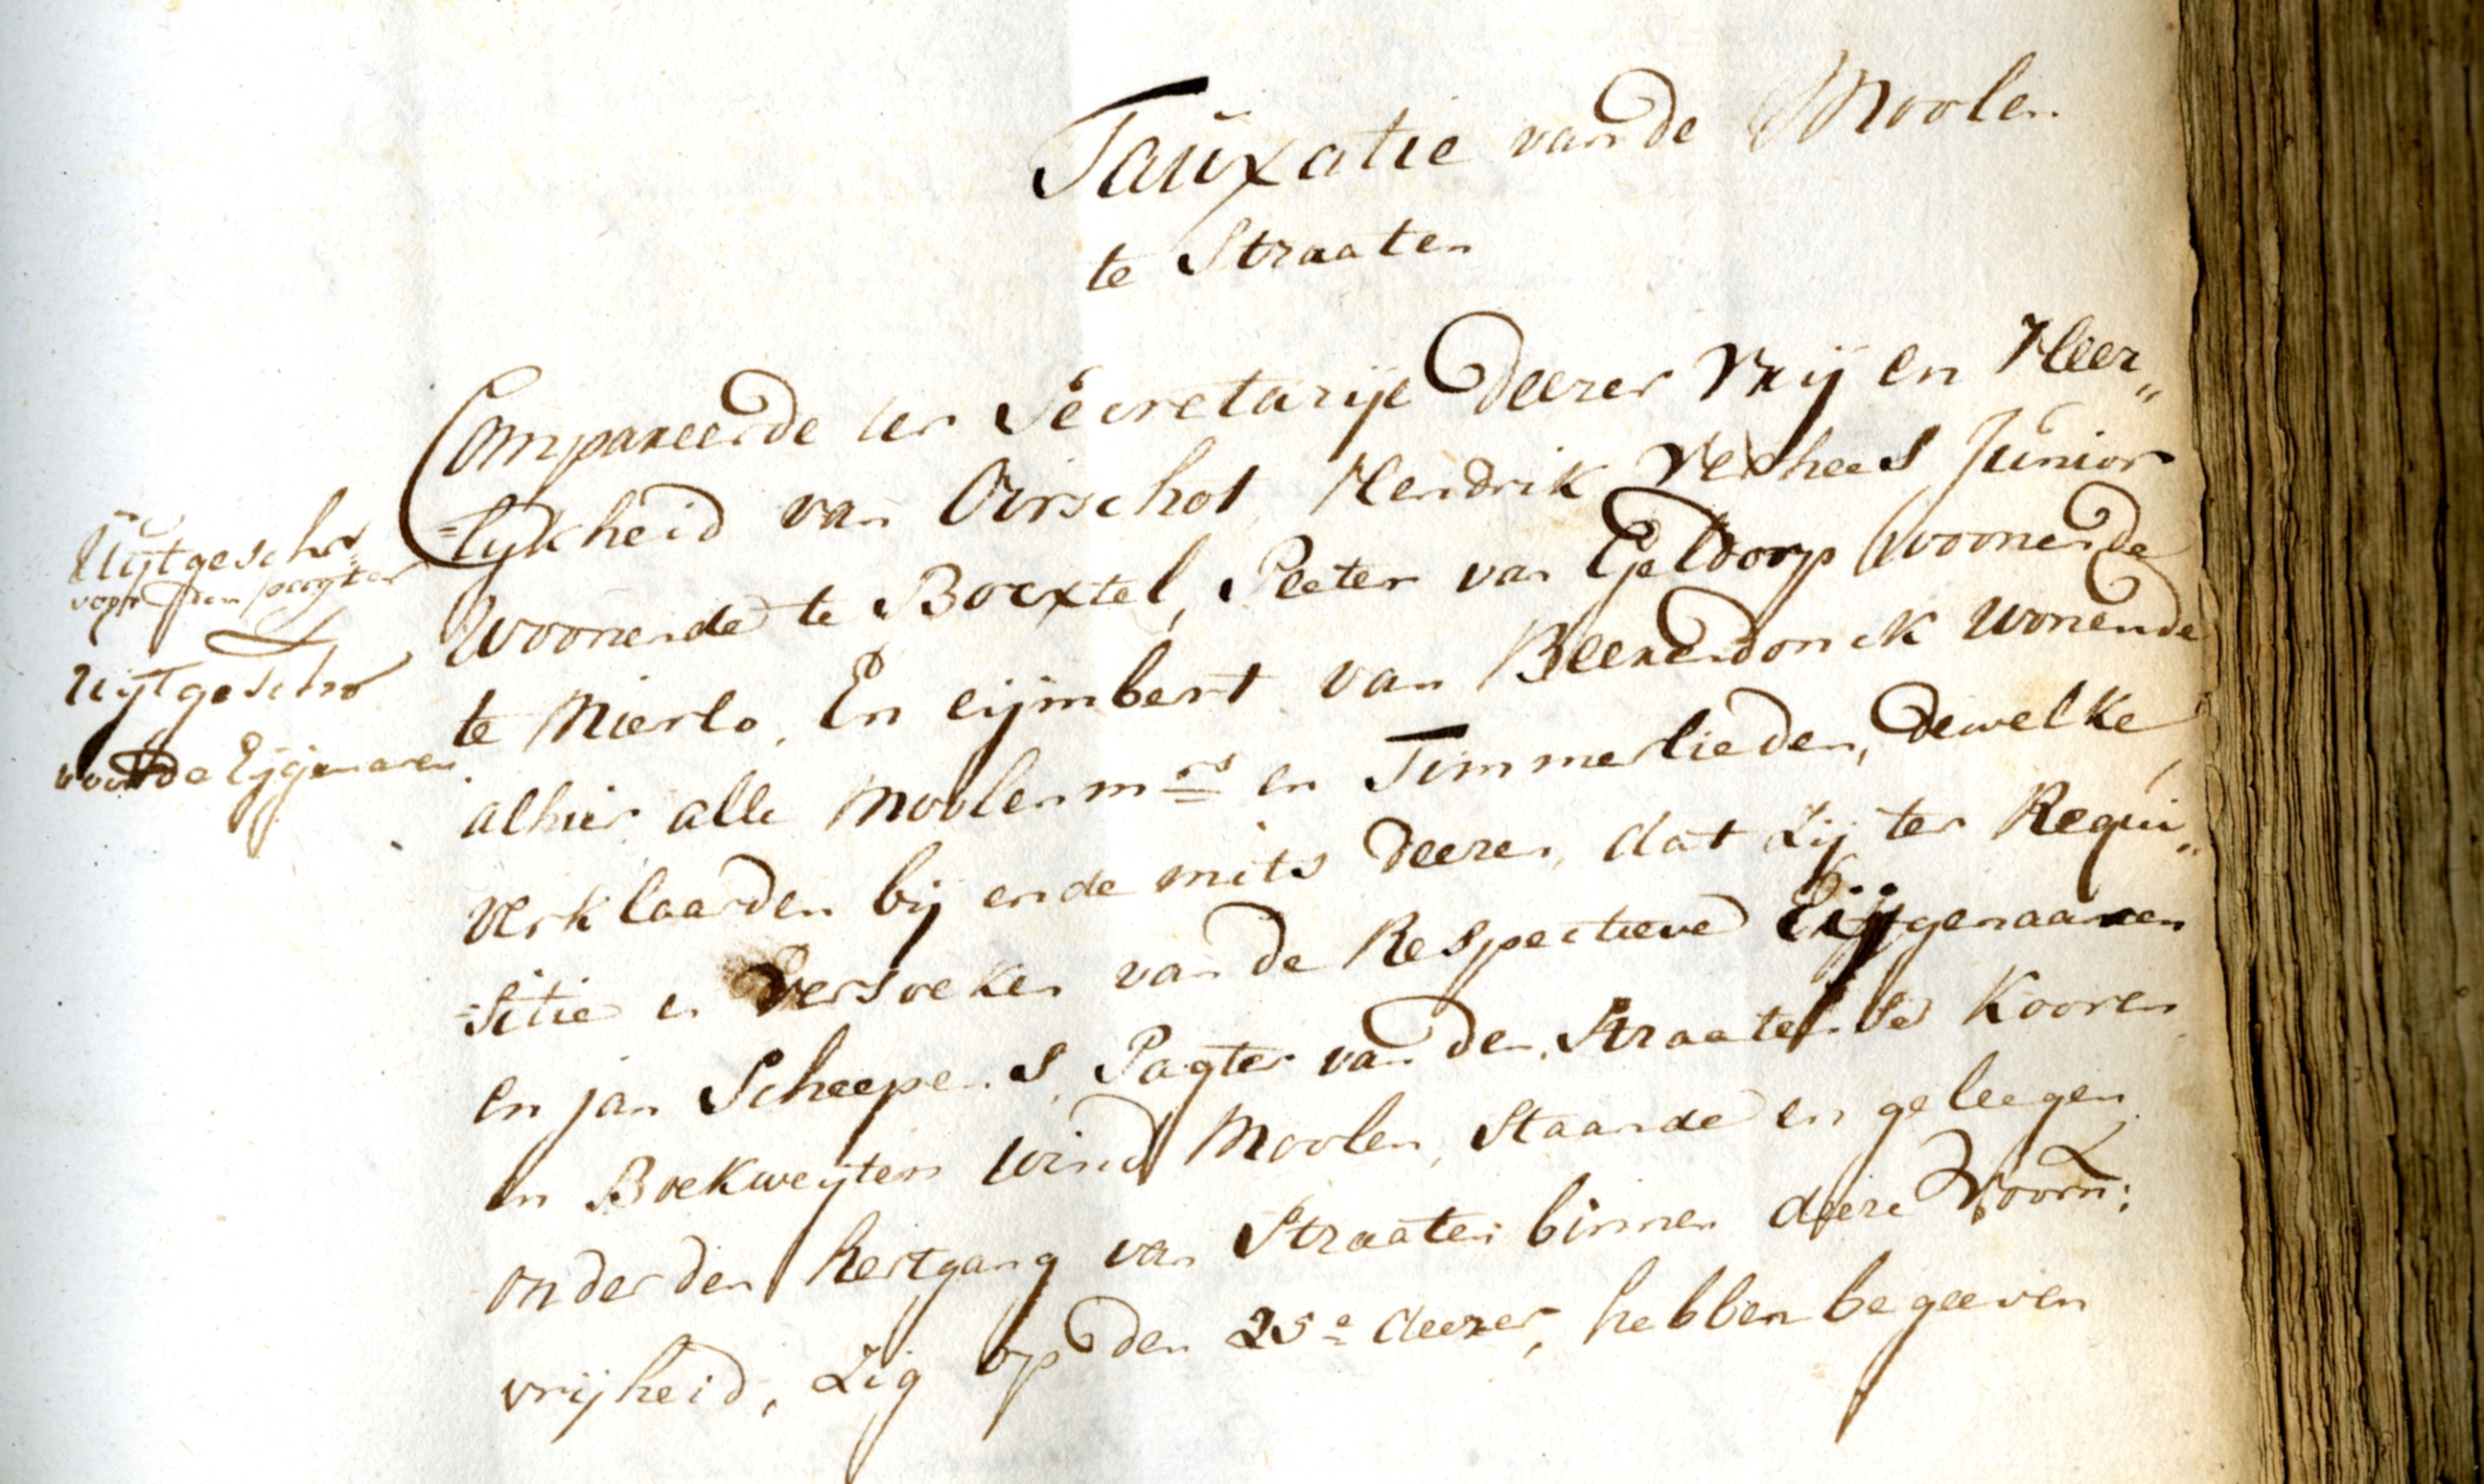 Tauxatie van de Moolen
te Straaten
Compareerde ter Secretarije deezer Vrij en Heer„
=lijkheid van Oirschot Hendrik Verhees Junior
Woonende te Boextel, Peeter van Geldorp Woonende
te Mierlo, En Eijmbert van Beerendonck Wonende
alhier alle Moolenmrs en Timmerlieden, dewelke
verklaarden bij ende mits deezen, dat zij ter Requi„
=sitie en versoeken van de Respectieve Eijgenaaren
en jan Scheepens, Pagter van den Straatense Kooren
en Boekweijten wind Moolen, staande en geleegen
onder den hertgang van Straaten binnen deeze Voorn:
vrijheid, Zig op den 25e deezer, hebben begeeven
Uijtgeschr
voor den pagter
Uijtgeschr
voor de Eijgenaaren